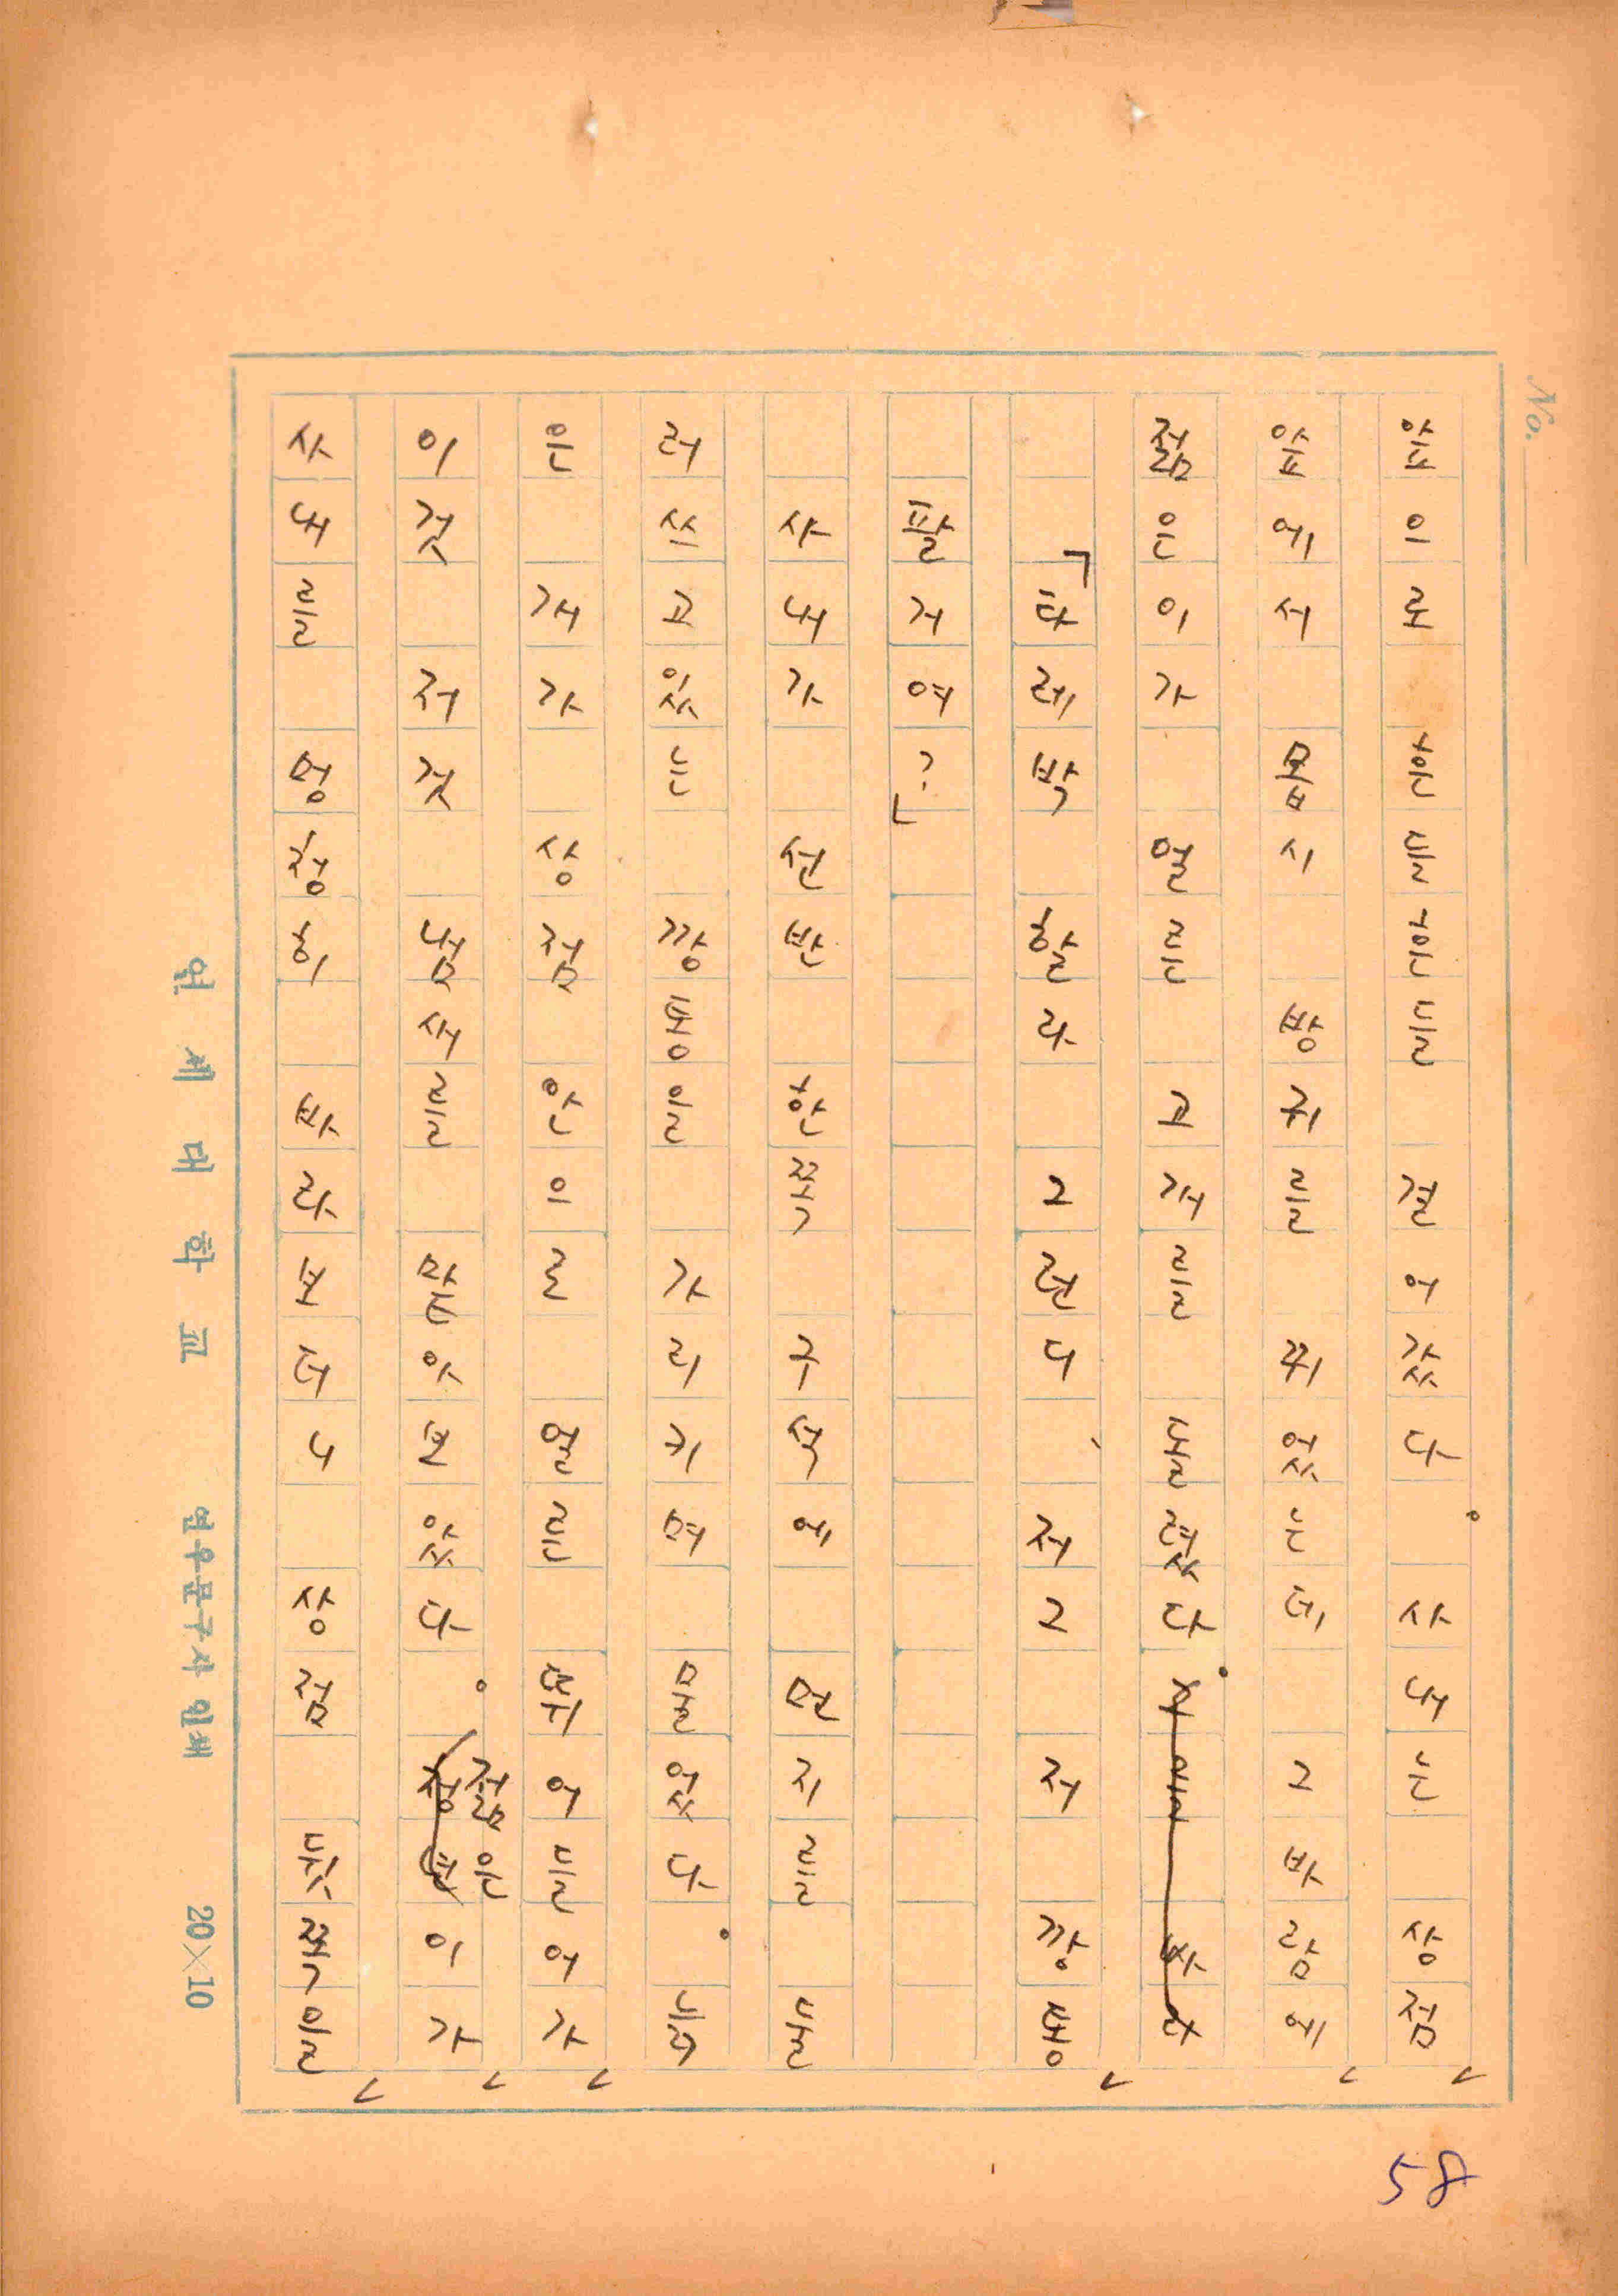 No.
앞으로 흔들흔들 걸어갔다. 사내는 상점
앞에서 몹시 방귀를 뀌었는데 그 바람에
젊은이가 얼른 고개를
「타레박 할라 그런니, 저그 저 깡통
팔거여?」
사내가 선반 한쪽 구석에 먼지를 둘
러쓰고 있는 깡통을 가리키며 물었다. 늙
은 개가 상점 안으로 얼른 뛰어들어가
이것 저것 냄새를 맡아 보았다. 젊은이가
사내를 멍청히 바라보더니 상점
연세대학교 연우문구사 인쇄 20×10
58